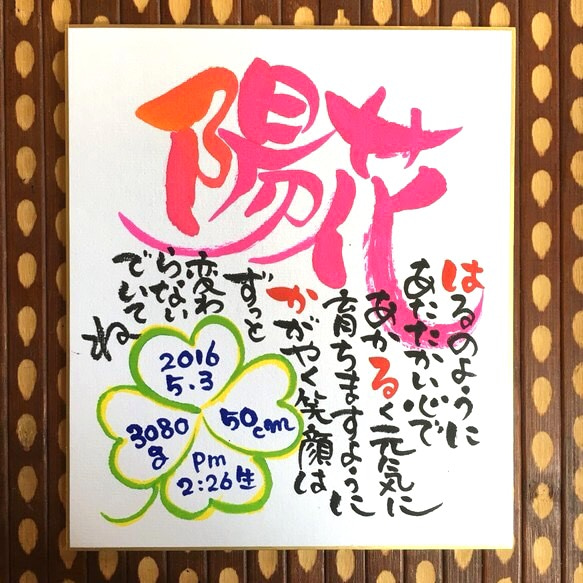 陽花
はるのように
あたたかい心で
あかるく元気に
育ちますように
かがやく笑顔は
ずっと
変わ
らない
でいて
ね
2016
5.3
50cm
3080
g
pm
2:26生